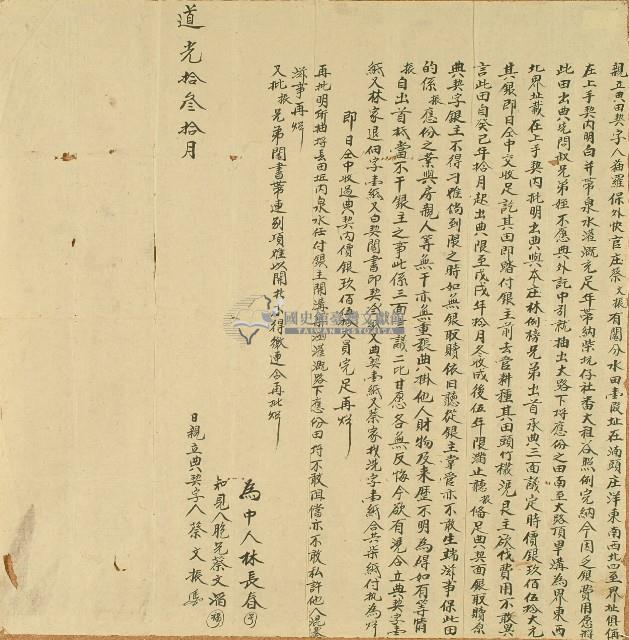 親立典田契字人貓羅保外快官庄蔡文振有鬮分水田壹段址在湳頭庄洋東南西北四至界址俱
在上手契內明白并帶泉水灌溉充足年帶納柴坑仔社番大租谷照例完納今因乏銀費用愿將
此田出典先問叔兄弟姪不應典外託中引就抽出大路下將應份之田南至大路頂車溝為界東西
北界址載在上手契內托明出典與本庄林例榜兄弟出首承典三面議定時價銀玖佰伍拾大元
其銀即日仝中交收足訖其田即踏付銀主前去管耕種其田頭竹欉 主欲伐費用不敢異
言此田自癸巳年拾月起出典限至戊戌年拾月冬收成後伍年限滿止聽振俻足典契面銀取贖原
典契字銀主不得刁難倘到限之時如無銀取贖依旧聽從銀主掌管亦不敢生端滋事保此田
的係振應份之業與房親人等無干亦無重張典掛他人財物及來歷不明為碍如有等情
振自出首抵當不干銀主之事此係三面 議二比甘愿各無反悔今欲有憑仝立典契字壹
紙又林家退佃字壹紙又白契鬮書印契 紙又典契壹紙又蔡家找洗字壹紙合共柒紙付執為炤
即日仝中收過典契內價銀玖佰伍 員完足再炤
再批明所抽將去田坵內泉水任付銀主開溝 涵灌溉路下應份田 不敢阻擋亦不敢私許他人混
滋事再炤
又批振兄弟鬮書帶連別項難以開 得繳連合再批炤
為中人林長春
知見人胞兄蔡文湄
日親立典契字人蔡文振
道光拾叁拾月
國史館臺灣文獻館
TAIWAN HISTORICA